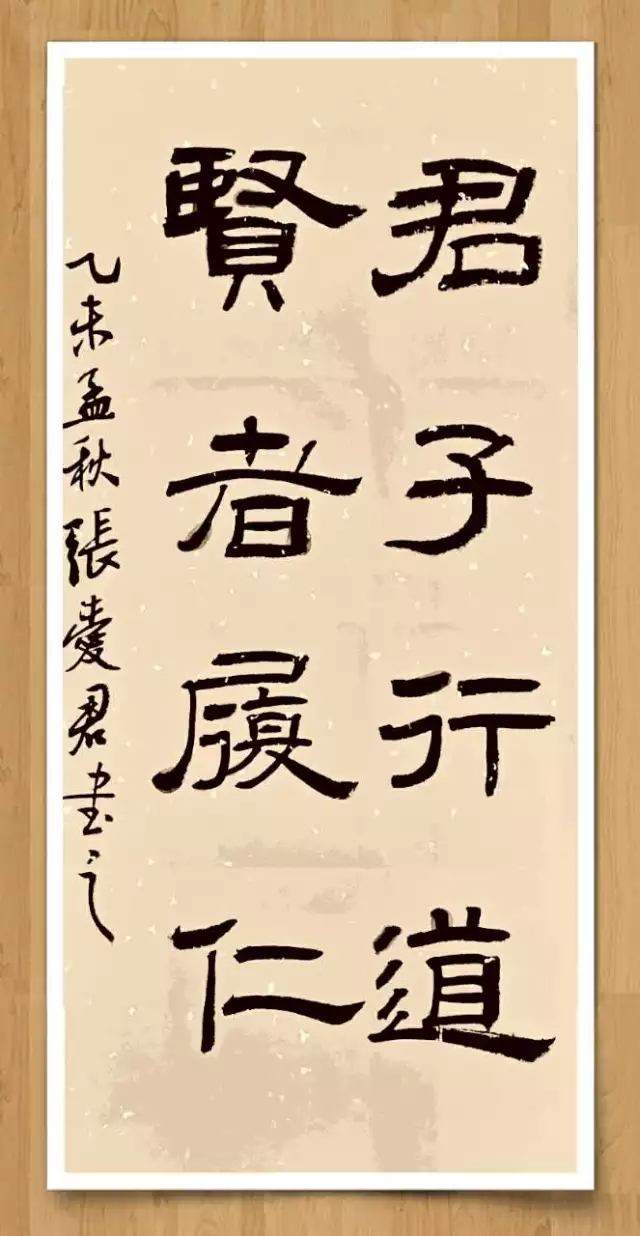 君子行道
賢者履仁
乙未孟秋張愛君书之